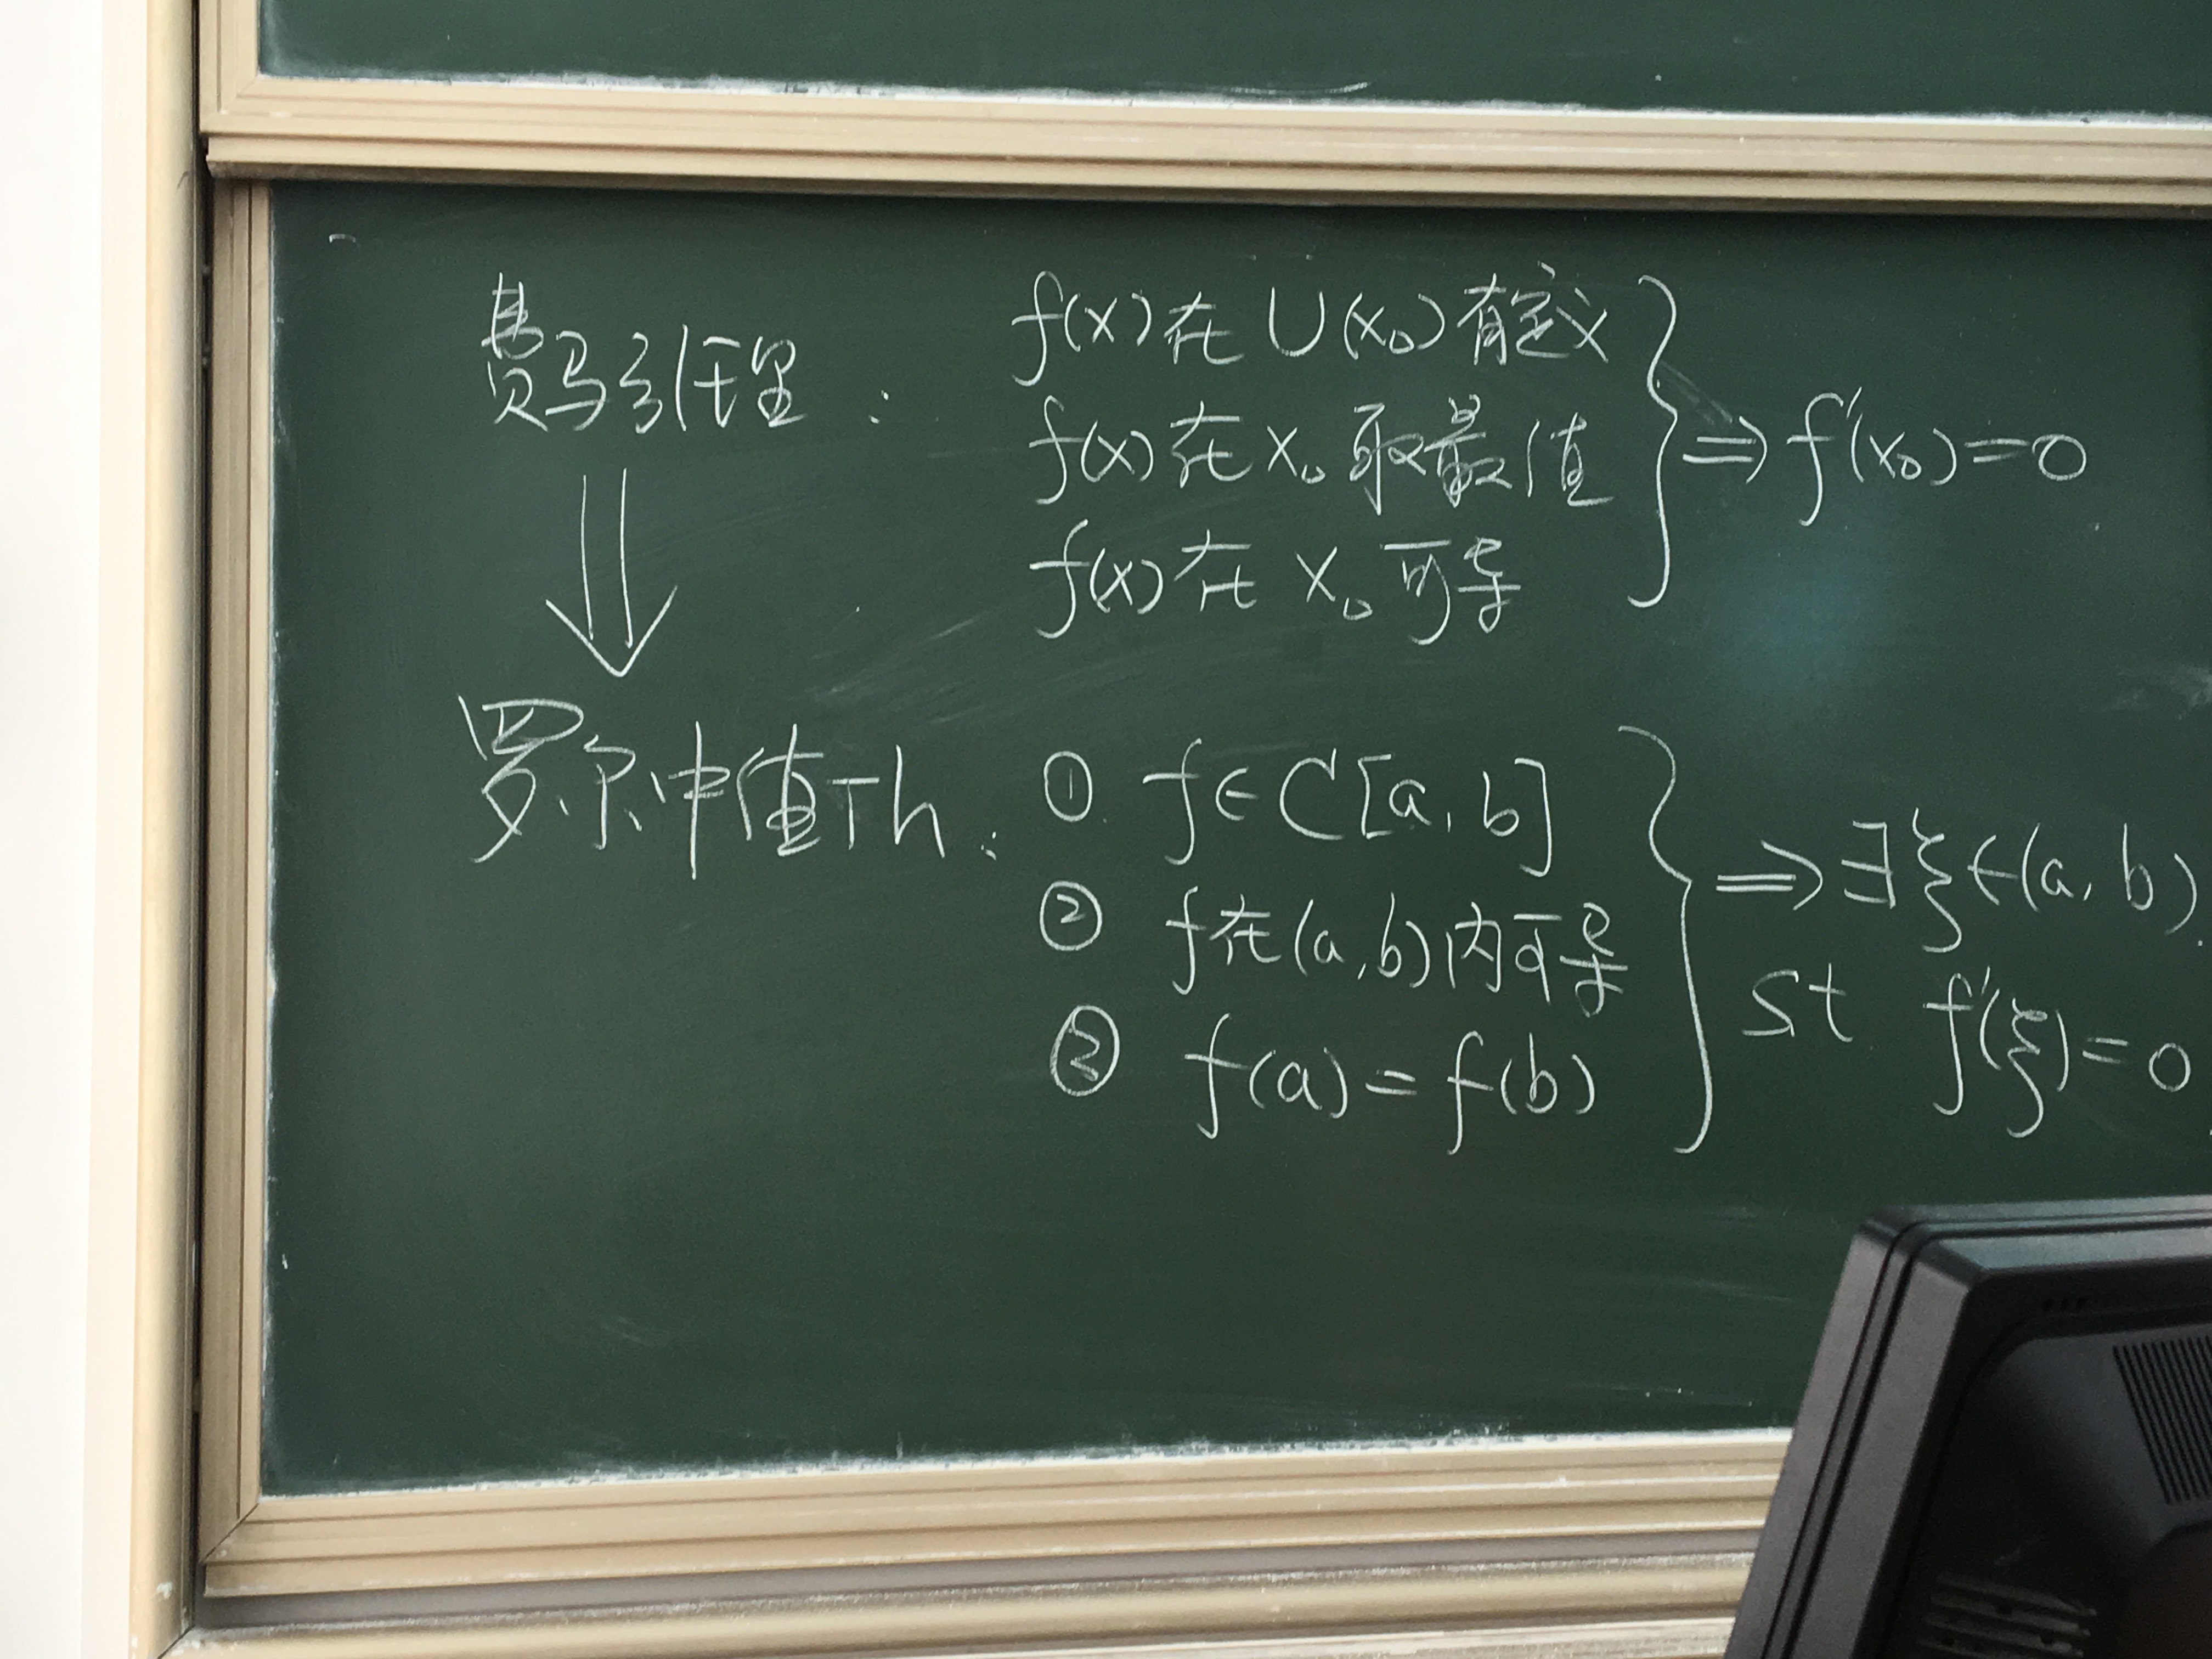 费马引理: f(x)在U(x₀)有定义
f(x)在x₀取最值
f(x)在x₀可导
⇒ f'(x₀)=0
罗尔中值Th: ① f∈C[a,b]
② f在(a,b)内可导
③ f(a)=f(b)
⇒ ∃ξ∈(a,b),
st f'(ξ)=0